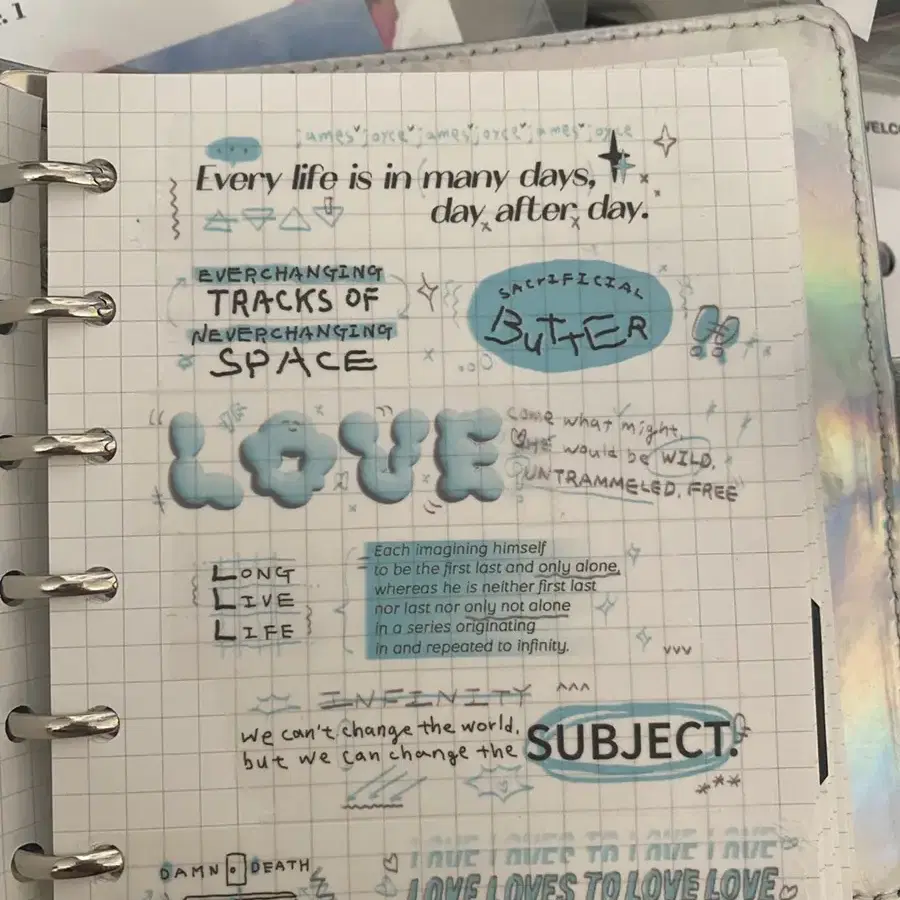 james joyce james joyce james joyce
Every life is in many days,
day after day.
EVERCHANGING
TRACKS OF
NEVERCHANGING
SPACE
SACRIFICIAL
BUTTER
LOVE
come what might,
love would be WILD,
UNTRAMMELED, FREE
LONG
LIVE
LIFE
Each imagining himself
to be the first last and only alone,
whereas he is neither first last
nor last nor only not alone
in a series originating
in and repeated to infinity.
INFINITY
we can't change the world,
but we can change the SUBJECT.
DAMN DEATH
LOVE LOVES TO LOVE LOVE
LOVE LOVES TO LOVE LOVE